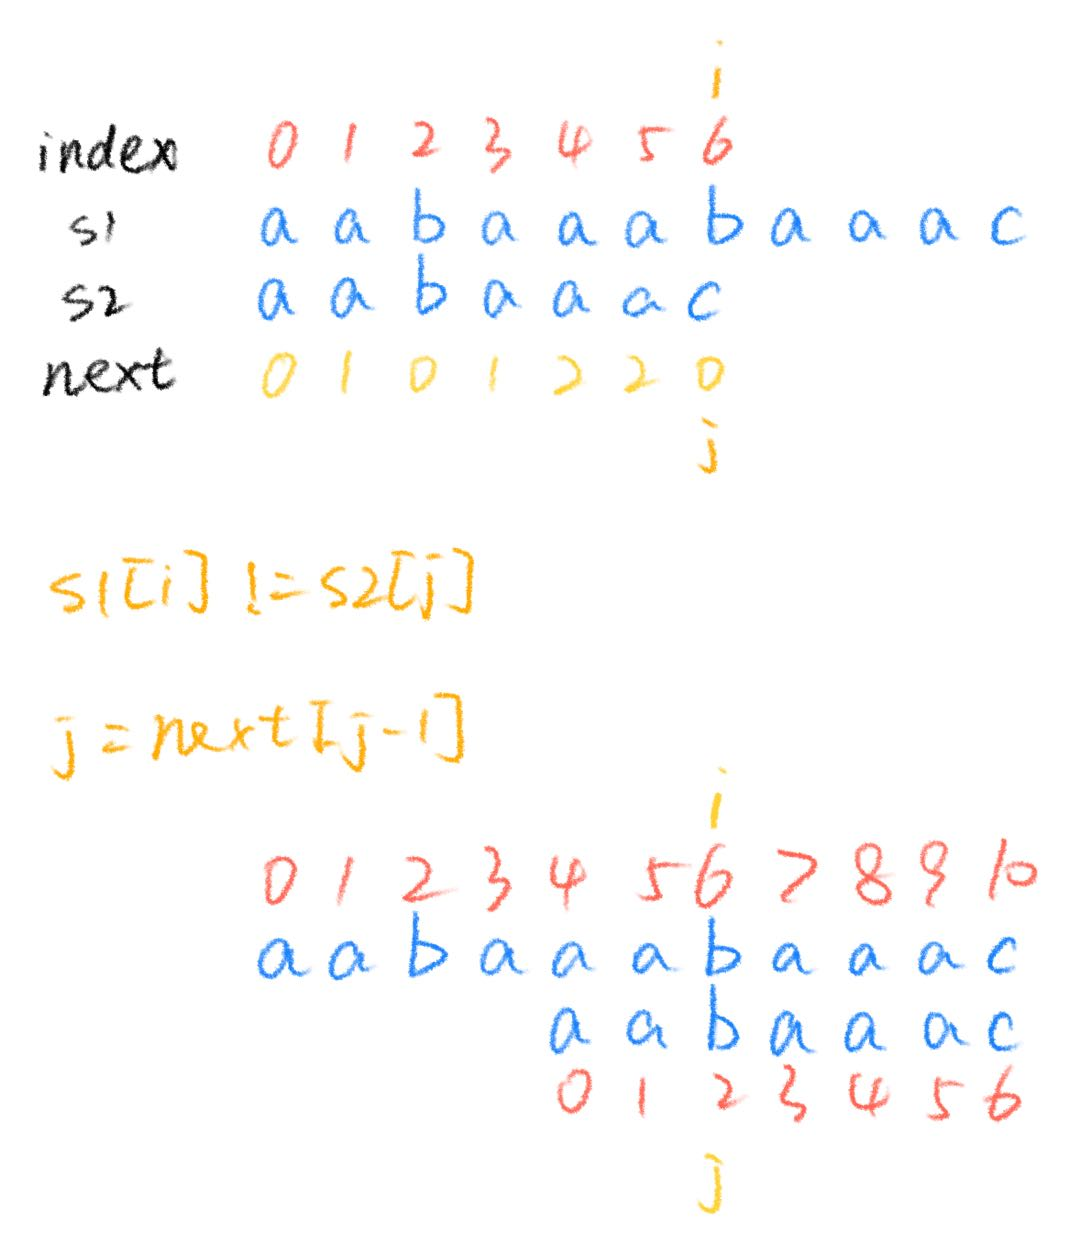 i
index 0 1 2 3 4 5 6
s1 a a b a a a b a a a c
s2 a a b a a a c
next 0 1 0 1 2 2 0
j
s1[i] != s2[j]
j = next[j-1]
i
0 1 2 3 4 5 6 7 8 9 10
a a b a a a b a a a c
a a b a a a c
0 1 2 3 4 5 6
j